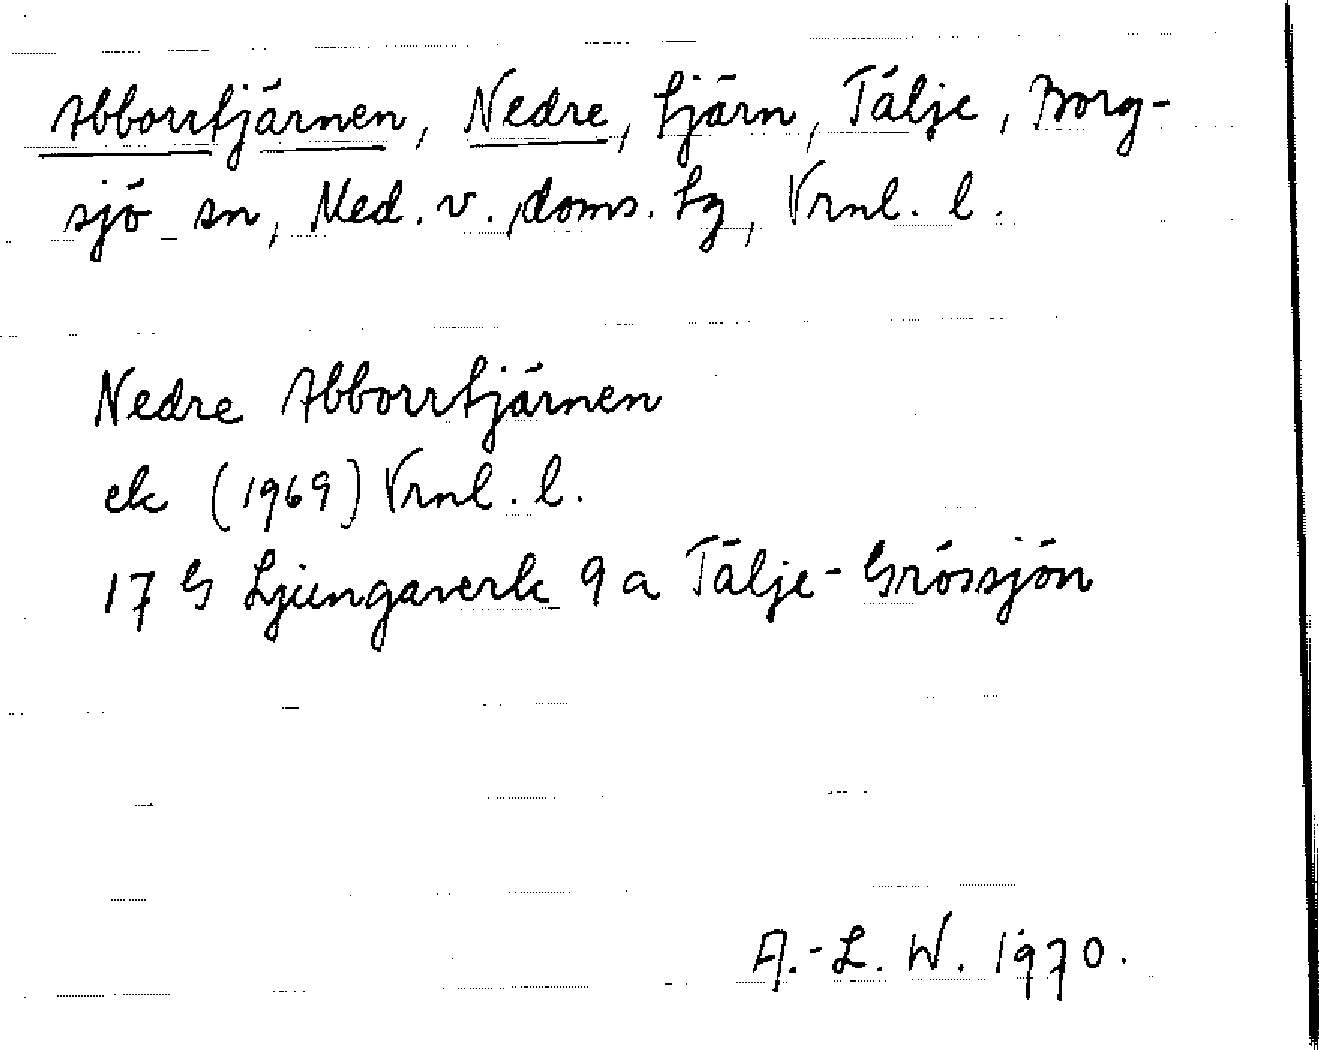 Abborrtjärnen, Nedre, tjärn, Tälje, Borg-
sjö sn, Med. v. doms. tg, Vrnl. l.
Nedre Abborrtjärnen
ek (1969) Vrnl. l.
17 G Ljungaverk 9 a Tälje-Grössjön
A.-L. W. 1970.